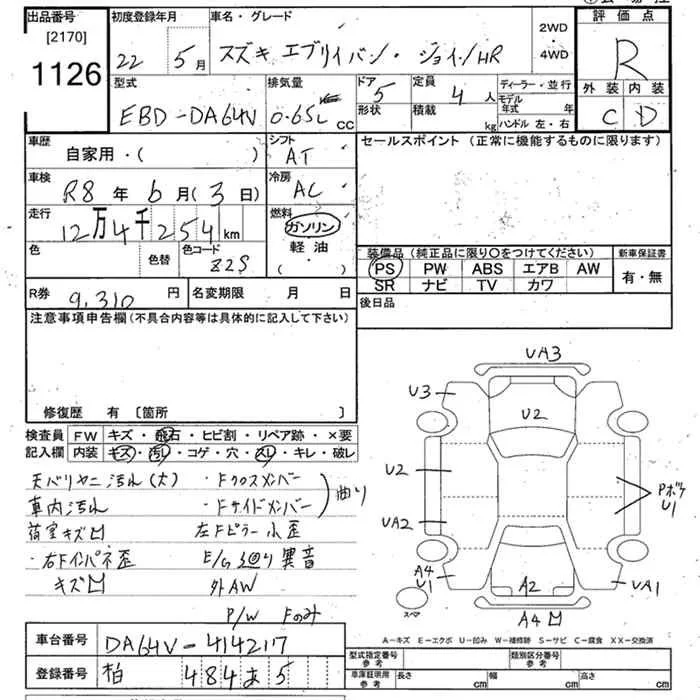 出品番号 初度登録年月 車名・グレード 2WD・4WD 評価点
[2170]
1126
22 5月 スズキ エブリィバン・ジョイン/HR R
型式 排気量 ドア 定員 ディーラー・並行 外装 内装
EBD-DA64V 0.65L CC 5 4人 C D
形状 積載 kg モデル年式 年
ハンドル 左・右
車歴 シフト セールスポイント (正常に機能するものに限ります)
自家用・( ) AT
車検 冷房
R8年6月(3日) AC
走行 燃料
12万4千254km ガソリン
軽油
( ・ )
色 色替 色コード Z2S
装備品(純正品に限り○をつけてください) 新車保証書
PS PW ABS エアB AW 有・無
SR ナビ TV カワ
R券 9,310円 名変期限 月 日 後日品
注意事項申告欄(不具合内容等は具体的に記入して下さい)
修復歴 有〔箇所 〕
検査員 FW キズ・飛石・ヒビ割・リペア跡・×要
記入欄 内装 キズ・汚れ・コゲ・穴・スレ・キレ・破レ
天バリヤニ汚れ(大) ・Fクロスメンバー
車内汚れ ・Fサイドメンバー 曲り
荷室キズ凹 左Fピラー小歪
・右Fインパネ歪 E/G廻り異音
キズ凹 外AW
P/W Fのみ
UA3
U3 U2
U2 Pボケ
U1
UA2
A4
U1 A2 UA1
スペア A4凹
A-キズ E-エクボ U-凹み W-補修跡 S-サビ C-腐食 XX-交換済
車台番号 DA64V-414217
登録番号 柏 484あ5
型式指定番号 参考 類別区分番号 参考
車庫証明用 参考 長さ cm 幅 cm 高さ cm